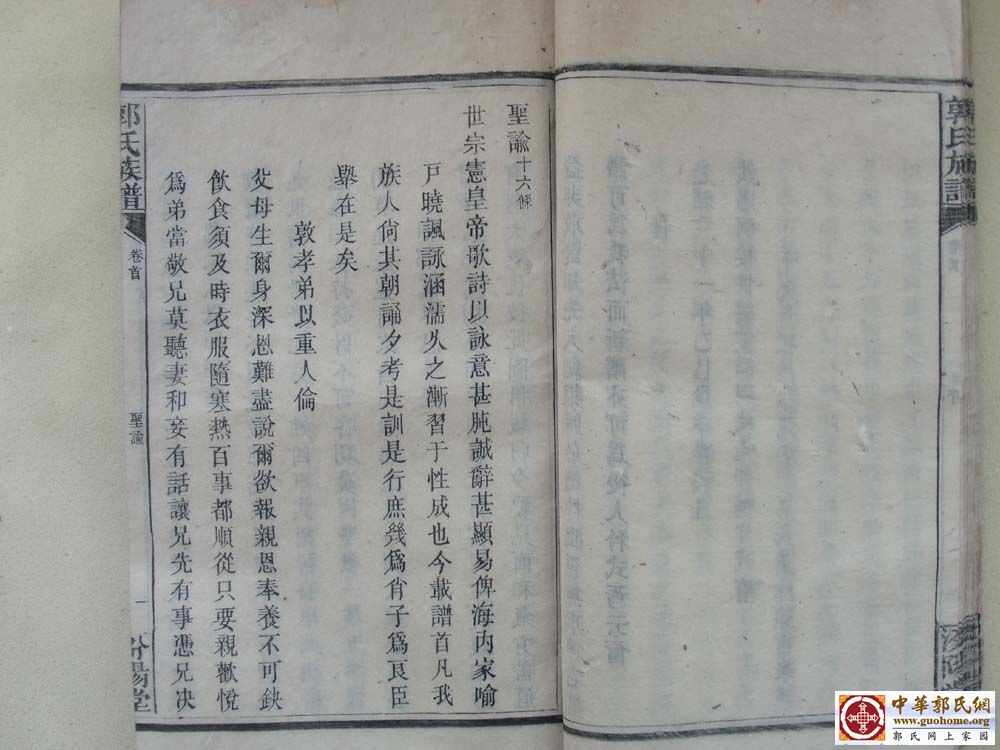 郭氏族譜
聖諭十六條
世宗憲皇帝歌詩以詠意甚肫誠辭甚顯易俾海内家喻
戸曉諷詠涵濡久之漸習于性成也今載譜首凡我
族人尙其朝誦夕考是訓是行庶幾爲肖子爲良臣
舉在是矣
敦孝弟以重人倫
父母生爾身深恩難盡說爾欲報親恩奉養不可缺
飲食須及時衣服隨寒熱百事都順從只要親歡悅
爲弟當敬兄莫聽妻和妾有話讓兄先有事憑兄决
郭氏族譜
卷首
聖諭
一
汾陽堂
中華郭氏網
www.guohome.org
郭氏网上家园